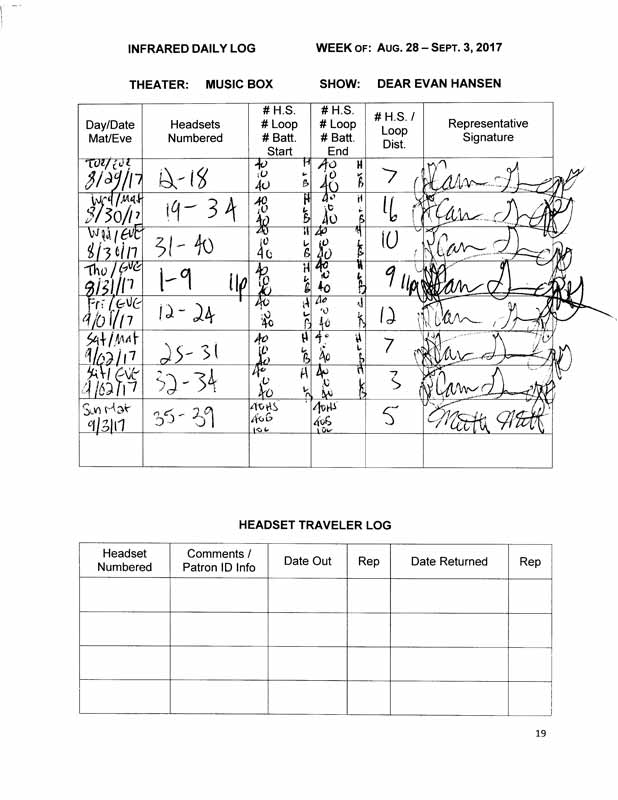 INFRARED DAILY LOG WEEK OF: AUG. 28 – SEPT. 3, 2017
THEATER: MUSIC BOX SHOW: DEAR EVAN HANSEN
Day/Date Mat/Eve Headsets Numbered # H.S. # Loop # Batt. Start # H.S. # Loop # Batt. End # H.S. / Loop Dist. Representative Signature
Tue/Eve 8/29/17 12-18 40 H 10 L 40 B 40 H 10 L 40 B 7
Wed/Mat 8/30/17 19-34 40 H 10 L 40 B 40 H 10 L 40 B 16
Wed/EVE 8/30/17 31-40 40 H 10 L 40 B 40 H 10 L 40 B 10
Thu/EVE 8/31/17 1-9 11p 40 H 10 L 40 B 40 H 10 L 40 B 9 11p
Fri/EVE 9/01/17 12-24 40 H 10 L 40 B 40 H 10 L 40 B 12
Sat/Mat 9/02/17 25-31 40 H 10 L 40 B 40 H 10 L 40 B 7
Sat/EVE 9/02/17 32-34 40 H 10 L 40 B 40 H 10 L 40 B 3
Sun Mat 9/3/17 35-39 40HS 40B 10L 40HS 40B 10L 5
HEADSET TRAVELER LOG
Headset Numbered Comments / Patron ID Info Date Out Rep Date Returned Rep
19